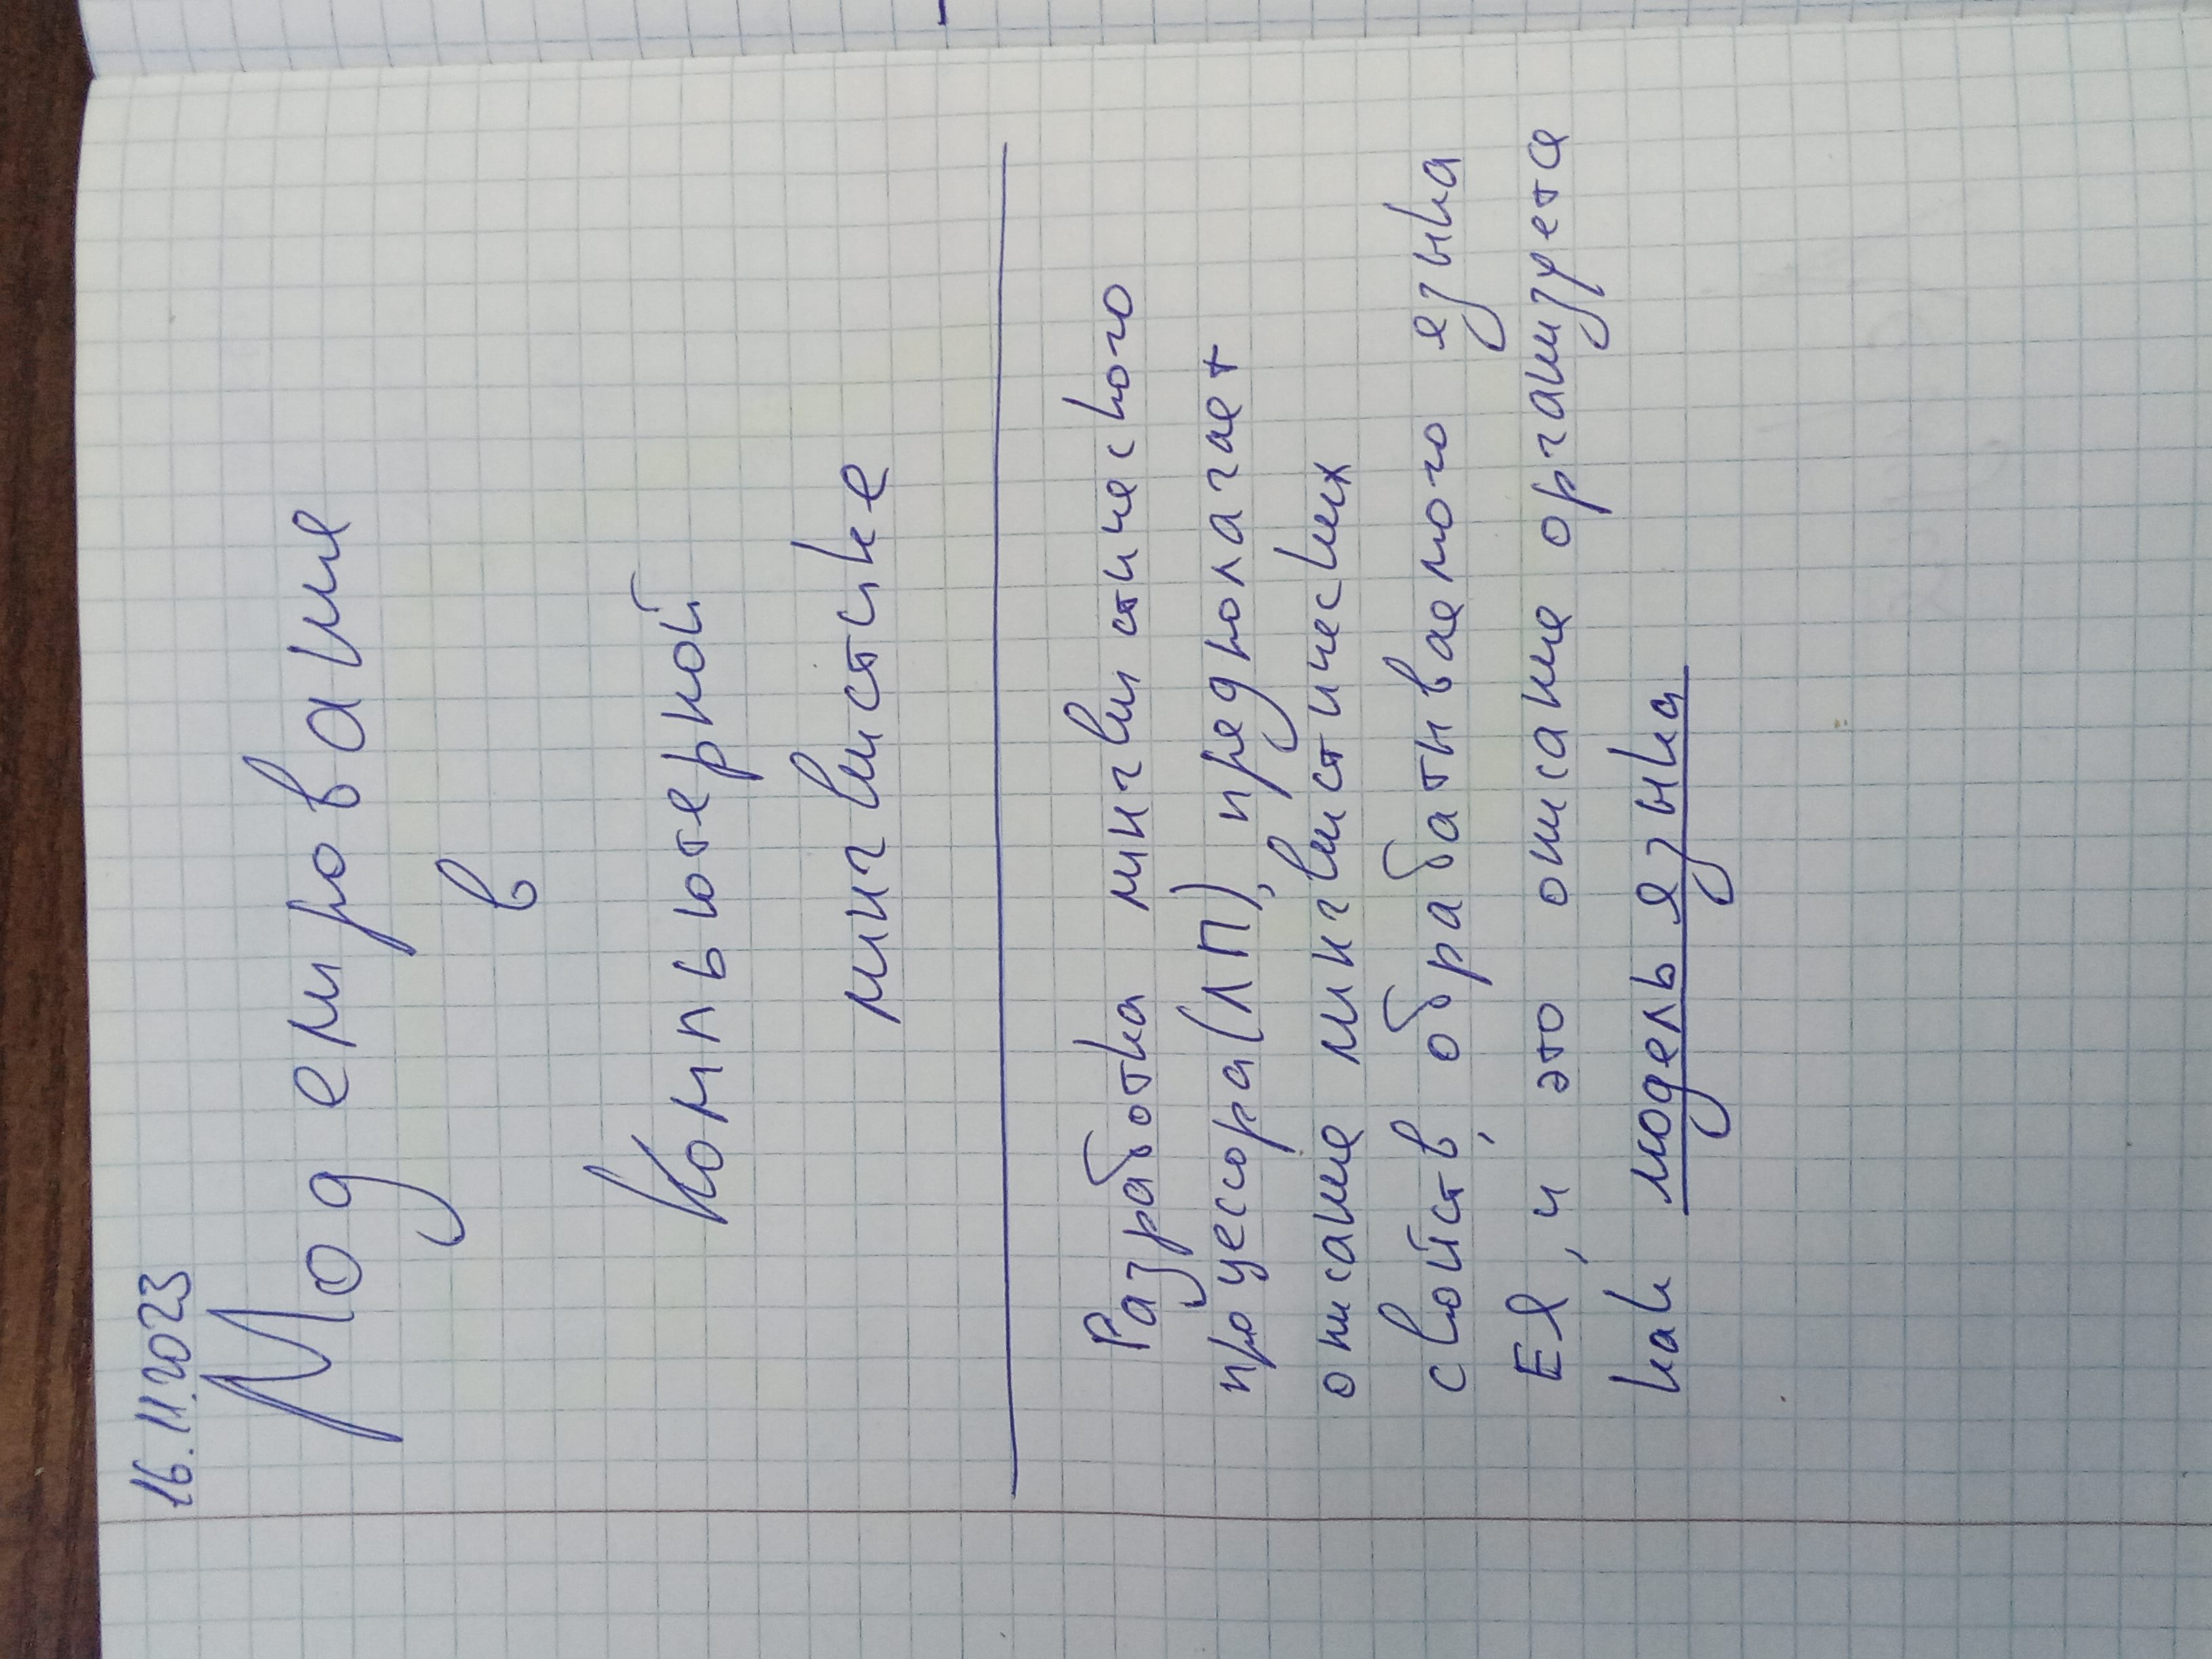 16.11.2023
Моделирование
в
Компьютерной
лингвистике
Разработка лингвистического
процессора(ЛП), предполагает
описание лингвистических
свойств, обрабатываемого языка
ЕЯ, и это описание организуется
как модель языка